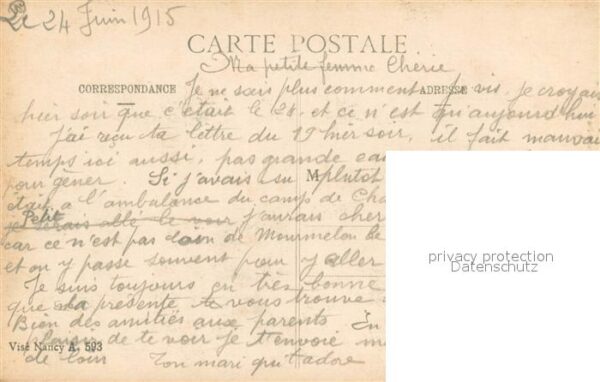 Le 24 Juin 1915
CARTE POSTALE
Ma petite femme Cherie
CORRESPONDANCE
ADRESSE
Je ne sais plus comment Je vis, je croyais
hier soir que c'était le 24 et ce n'est qu'aujourd'hui
J'ai reçu ta lettre du 19 hier soir, il fait mauvais
temps ici aussi, pas grande
pour gêner. Si j'avais su plutôt
était a l'ambulance du camp de
Petit
je serais allé le voir j'aurais
car ce n'est pas loin de Mourmelon le
et on y passe souvent pour y aller
Je suis toujours en très bonne
que la présente te vous trouve
Bien des amitiés aux parents En
plaisir de te voir je t'envoie
de loin Ton mari qui t'adore
Visé Nancy A. 593
privacy protection
Datenschutz